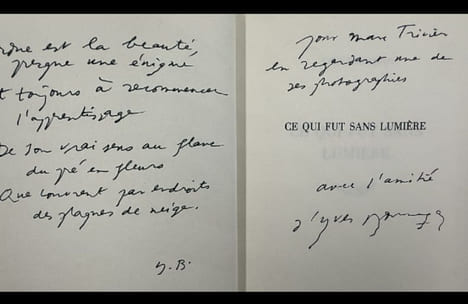 est la beauté,
presque une énigme
et toujours à recommencer
l'apprentissage
De son vrai sens au flanc
du pré en fleurs
Que couvrent par endroits
des plaques de neige.
Y. B.
pour Marc Trivier
en regardant une de
ses photographies
CE QUI FUT SANS LUMIÈRE
avec l'amitié
d'Yves Bonnefoy